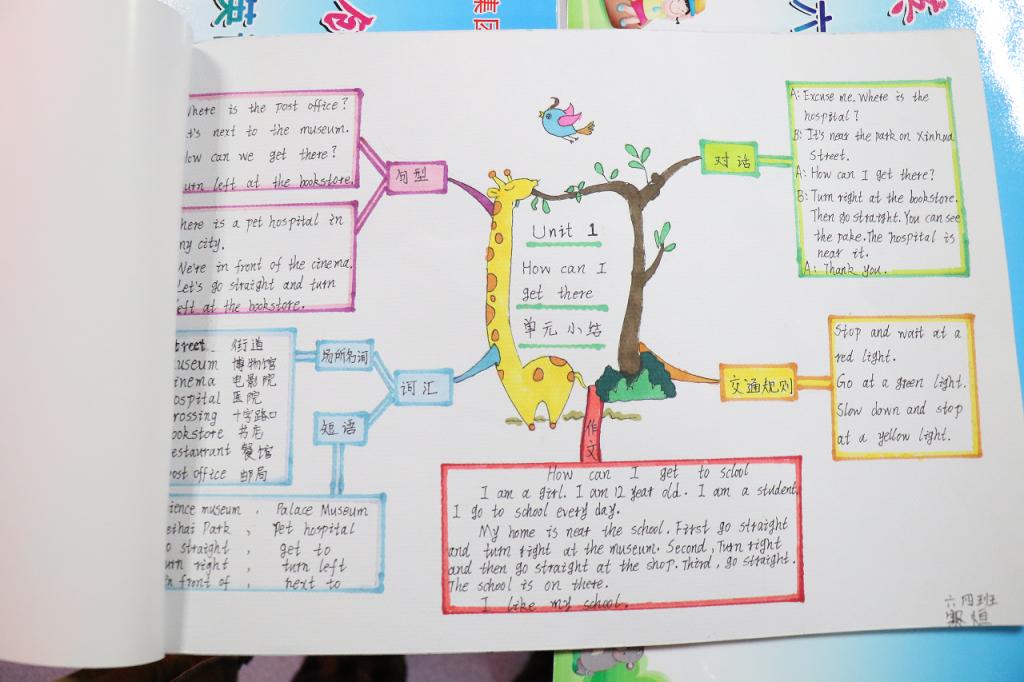 is the post office?
next to the museum.
can we get there?
left at the bookstore.
句型
is a pet hospital in
city.
We're in front of the cinema.
Let's go straight and turn
at the bookstore.
街道
博物馆
电影院
医院
十字路口
书店
餐馆
office 邮局
场所名词
词汇
短语
museum, Palace Museum
Park, Pet hospital
straight, get to
right, turn left
front of, next to
Unit 1
How can I
get there
单元小结
对话
A: Excuse me. Where is the
hospital?
B: It's near the park on Xinhua
Street.
A: How can I get there?
B: Turn right at the bookstore.
Then go straight. You can see
the pake. The hospital is
near it.
A: Thank you.
交通规则
Stop and wait at a
red light.
Go at a green light.
Slow down and stop
at a yellow light.
作文
How can I get to sclool
I am a girl. I am 12 year old. I am a student.
I go to school every day.
My home is near the school. First go straight
and turn right at the museum. Second, Turn right
and then go straight at the shop. Third, go straight.
The school is on there.
I like my school.
六四班